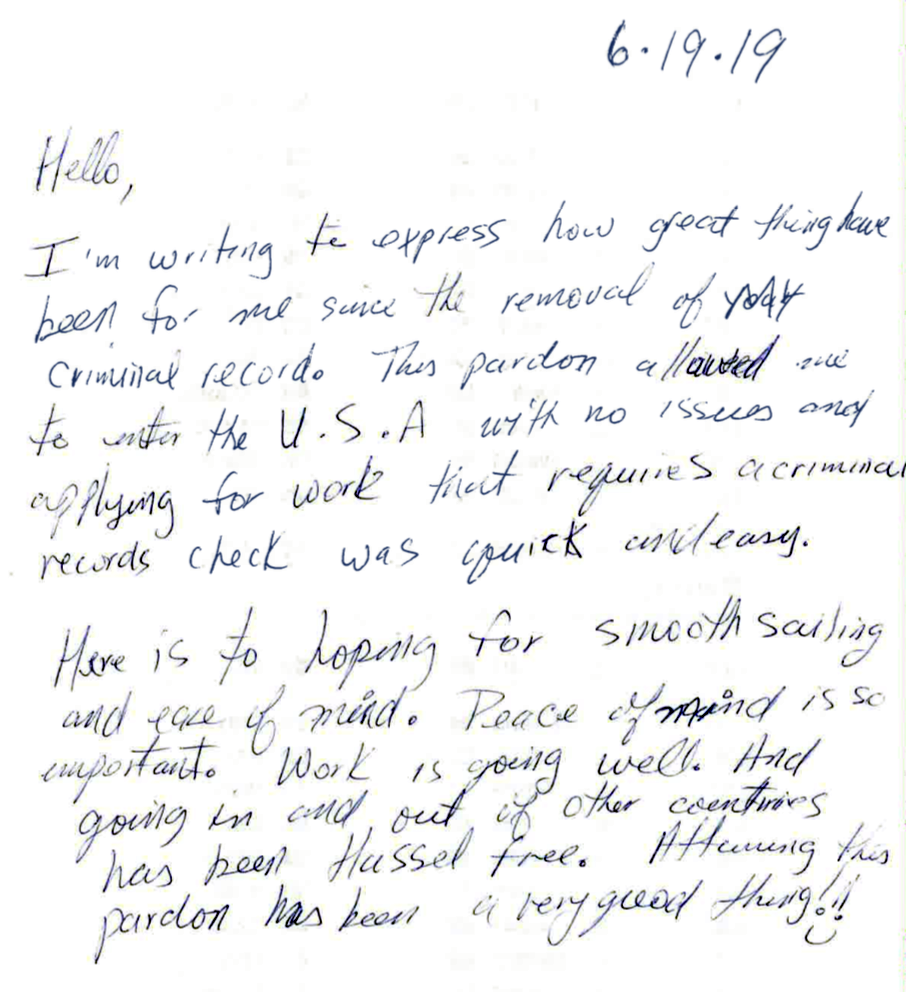 6.19.19
Hello,
I'm writing to express how great thing have
been for me since the removal of
criminal record. This pardon allowed me
to enter the U.S.A with no issues and
applying for work that requires a criminal
records check was quick and easy.
Here is to hoping for smooth sailing
and ease of mind. Peace of mind is so
important. Work is going well. And
going in and out of other countries
has been Hassel free. Attaining this
pardon has been a very good thing!!